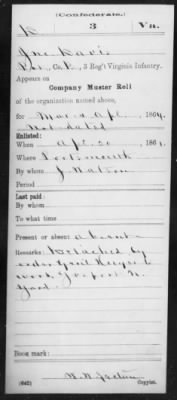 (Confederate.)
K 3 Va.
Jno Davis
Pvt., Co. K, 3 Reg't Virginia Infantry.
Appears on
Company Muster Roll
of the organization named above,
for Mar & Apl, 1864.
Not dated
Enlisted:
When Apl 20, 1861.
Where Portsmouth
By whom J.
Period
Last paid:
By whom
To what time
Present or absent: absent
Remarks: Detached by
order Genl
work Gosport N.
Yard.
Book mark:
(642) Copyist.